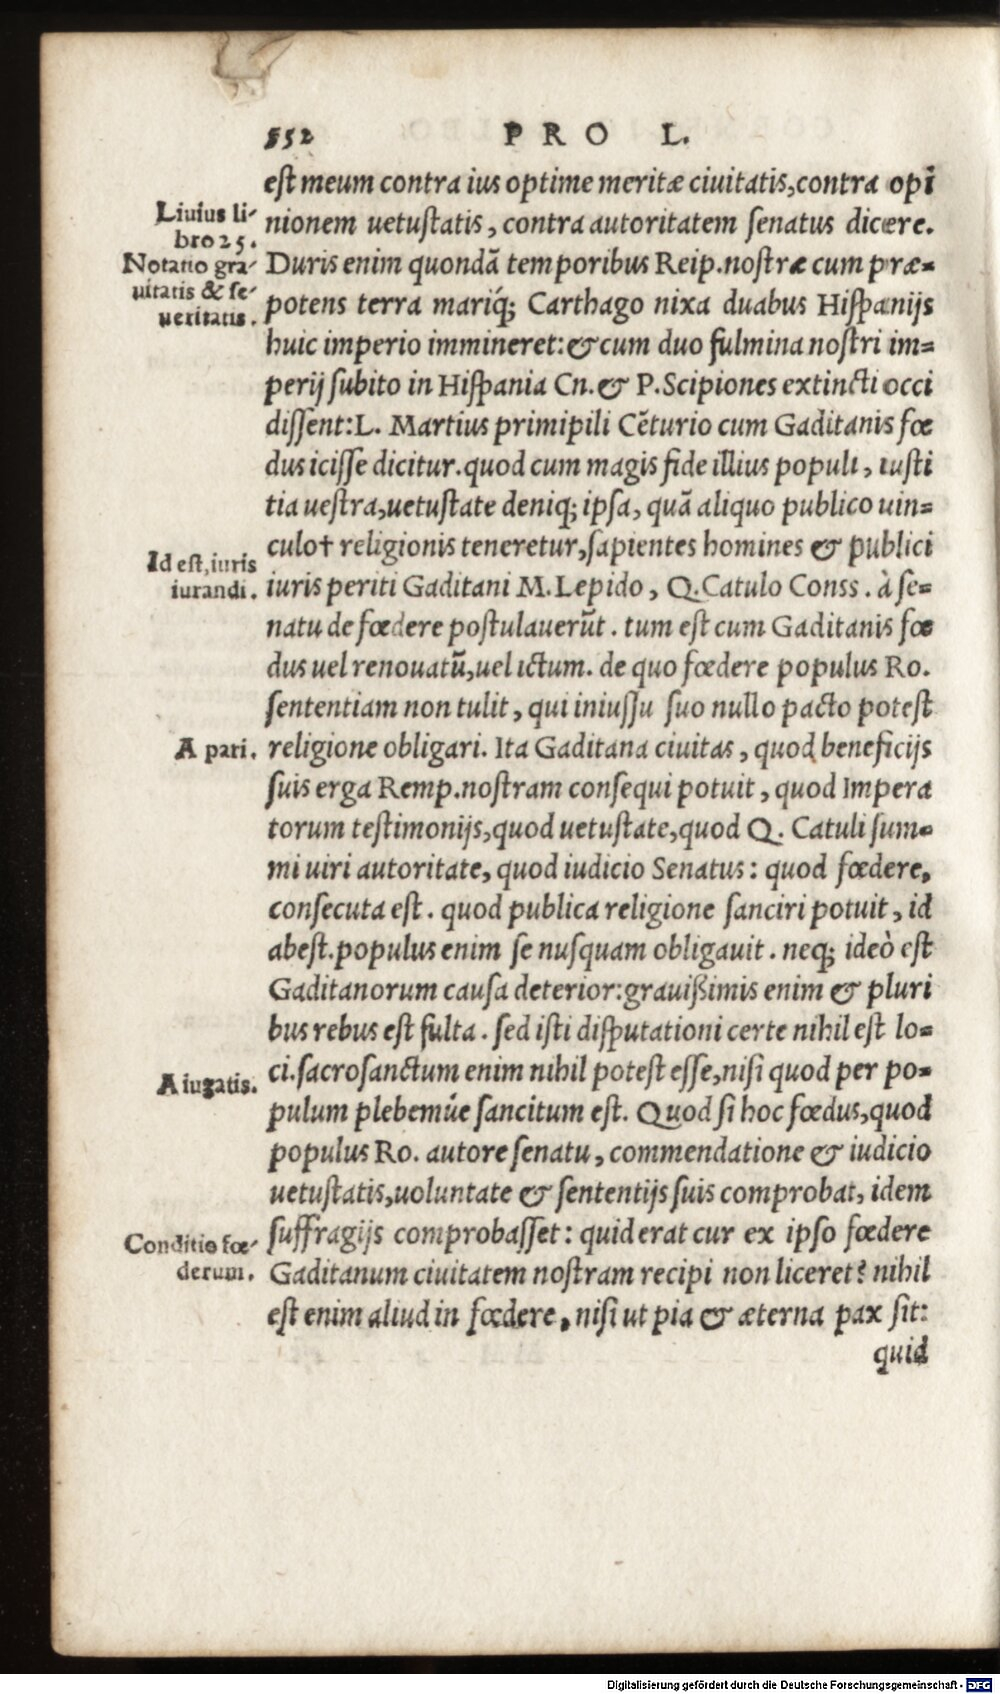 552 PRO L.
est meum contra ius optime meritæ ciuitatis, contra opī
nionem uetustatis, contra autoritatem senatus dicere.
Duris enim quondā temporibus Reip. nostræ cum præ=
potens terra mariq́; Carthago nixa duabus Hispanijs
huic imperio immineret: & cum duo fulmina nostri im=
perij subito in Hispania Cn. & P. Scipiones extincti occi
dissent: L. Martius primipili Cēturio cum Gaditanis fœ
dus icisse dicitur. quod cum magis fide illius populi, iusti
tia uestra, uetustate deniq; ipsa, quā aliquo publico uin=
culo† religionis teneretur, sapientes homines & publici
iuris periti Gaditani M. Lepido, Q. Catulo Conss. à se=
natu de fœdere postulauerūt. tum est cum Gaditanis fœ
dus uel renouatū, uel ictum. de quo fœdere populus Ro.
sententiam non tulit, qui iniussu suo nullo pacto potest
religione obligari. Ita Gaditana ciuitas, quod beneficijs
suis erga Remp. nostram consequi potuit, quod Impera
torum testimonijs, quod uetustate, quod Q. Catuli sum=
mi uiri autoritate, quod iudicio Senatus: quod fœdere,
consecuta est. quod publica religione sanciri potuit, id
abest. populus enim se nusquam obligauit. neq; ideò est
Gaditanorum causa deterior: grauißimis enim & pluri
bus rebus est fulta. sed isti disputationi certe nihil est lo=
ci. sacrosanctum enim nihil potest esse, nisi quod per po=
pulum plebemúe sancitum est. Quod si hoc fœdus, quod
populus Ro. autore senatu, commendatione & iudicio
uetustatis, uoluntate & sententijs suis comprobat, idem
suffragijs comprobasset: quid erat cur ex ipso fœdere
Gaditanum ciuitatem nostram recipi non liceret? nihil
est enim aliud in fœdere, nisi ut pia & æterna pax sit:
quid
Liuius li-
bro 25.
Notatio gra-
uitatis & se-
ueritatis.
Id est, iuris
iurandi.
A pari.
A iugatis.
Conditio fœ-
derum.
Digitalisierung gefördert durch die Deutsche Forschungsgemeinschaft - DFG